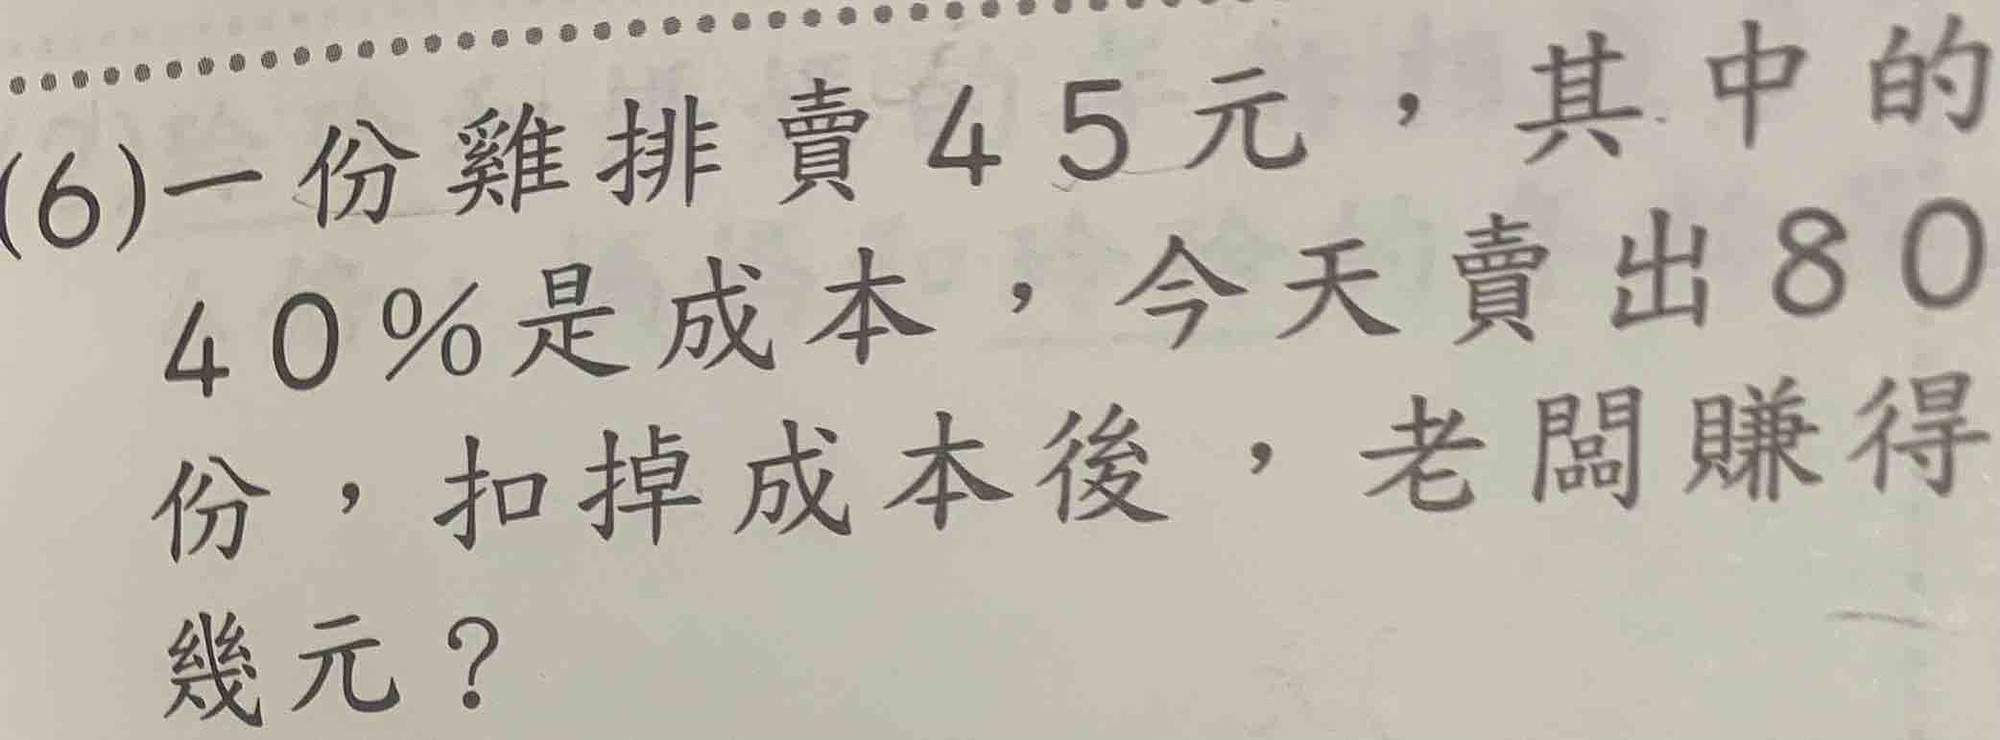 (6)一份雞排賣45元，其中的
40%是成本，今天賣出80
份，扣掉成本後，老闆賺得
幾元？